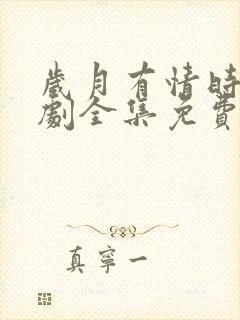 歲月有情時
劇全集免費
真寧一